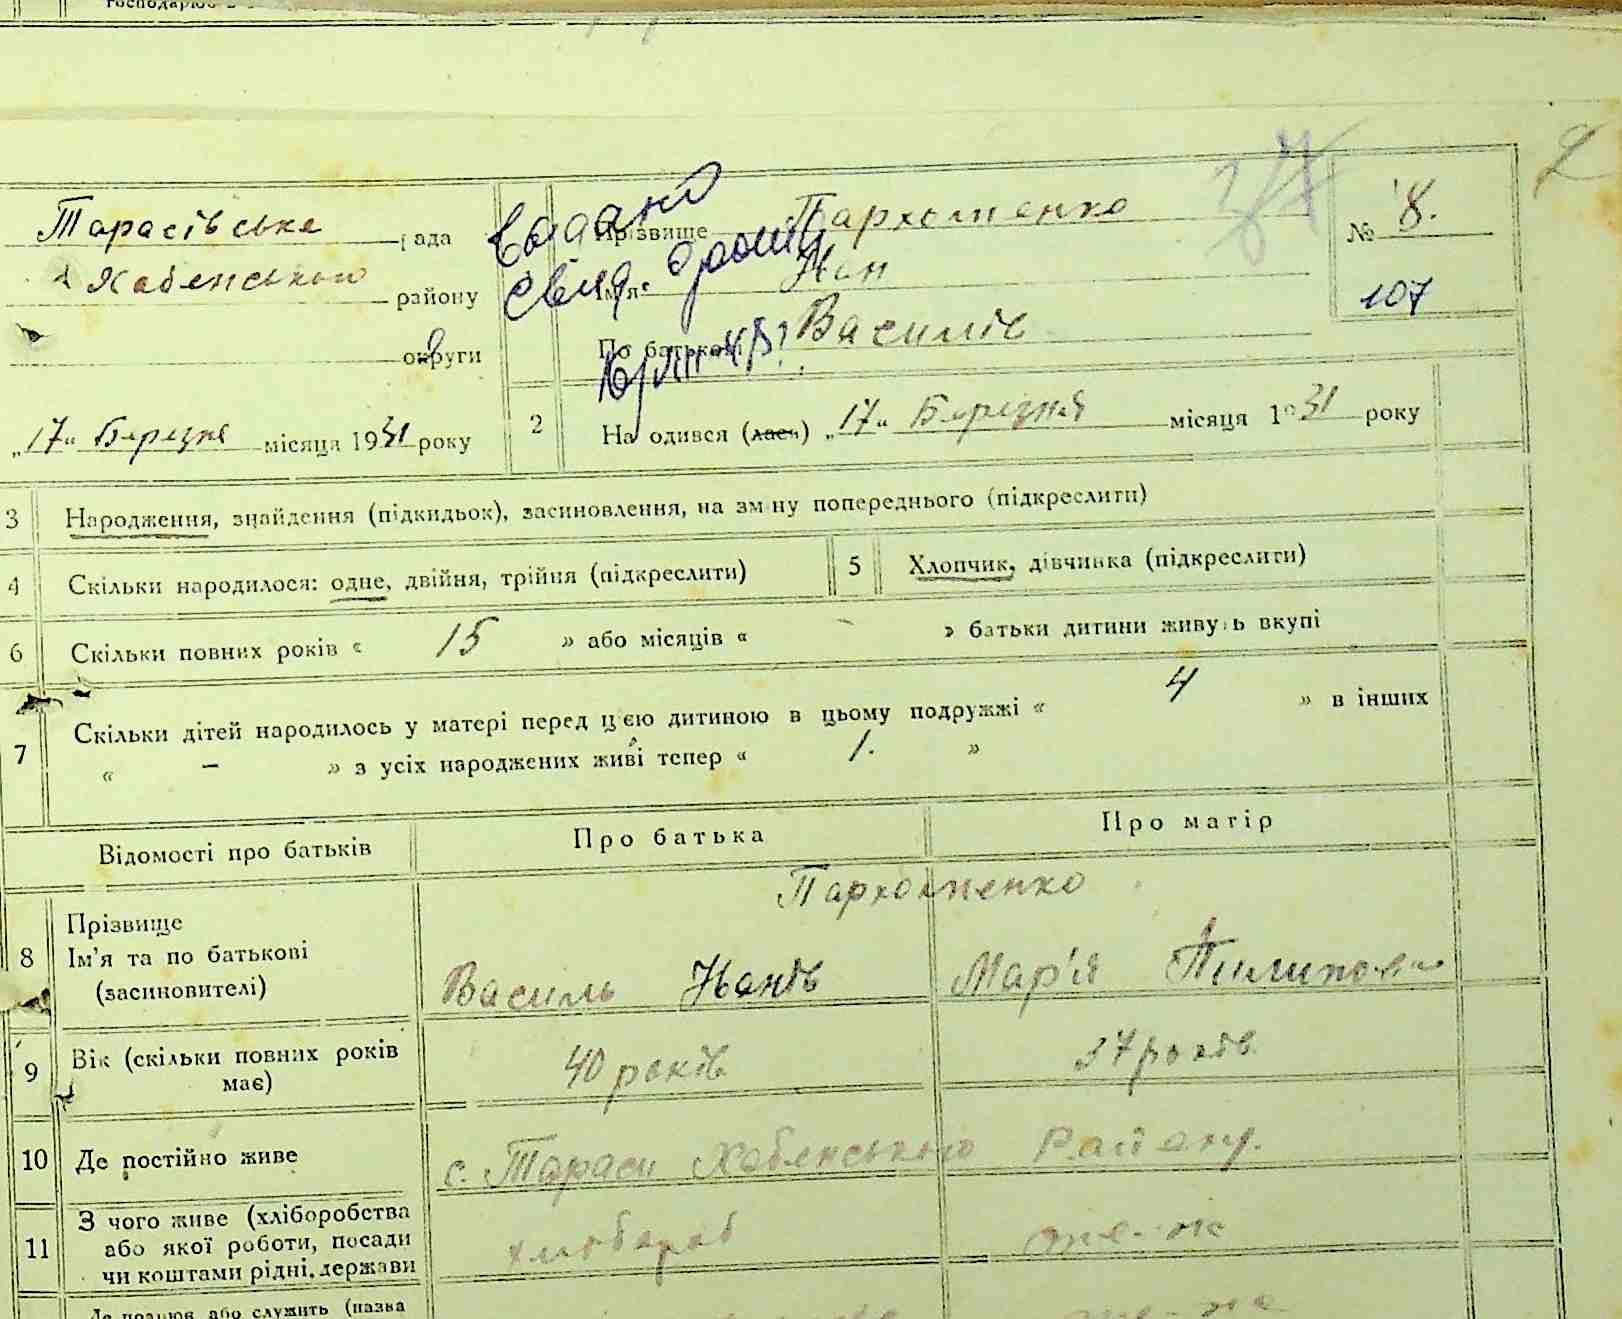 господарюю
2
Тарасівська рада
Хабенського району
округи
„17“ Березня місяця 1931 року
видано
свід.
Прізвище Пархоменко
Ім'я Іван
По батькові Василів
№ 8.
107
2 На одився (лась) „17“ Березня місяця 1931 року
3 Народження, знайдення (підкидьок), засиновлення, на зм ну попереднього (підкреслити)
4 Скільки народилося: одне, двійня, трійня (підкреслити)
5 Хлопчик, дівчинка (підкреслити)
6 Скільки повних років « 15 » або місяців « - » батьки дитини живуть вкупі
7 Скільки дітей народилось у матері перед цією дитиною в цьому подружжі « 4 » в інших
« – » з усіх народжених живі тепер « 1. »
Відомості про батьків Про батька Про матір
8 Прізвище Пархоменко
Ім'я та по батькові
(засиновителі) Василь Іванів Мар'я Пилипови
9 Вік (скільки повних років має) 40 років 37 років
10 Де постійно живе с. Тараси Хабенського Району.
11 З чого живе (хліборобства
або якої роботи, посади
чи коштами рідні, держави хлібороб
Де працює або служить (назва